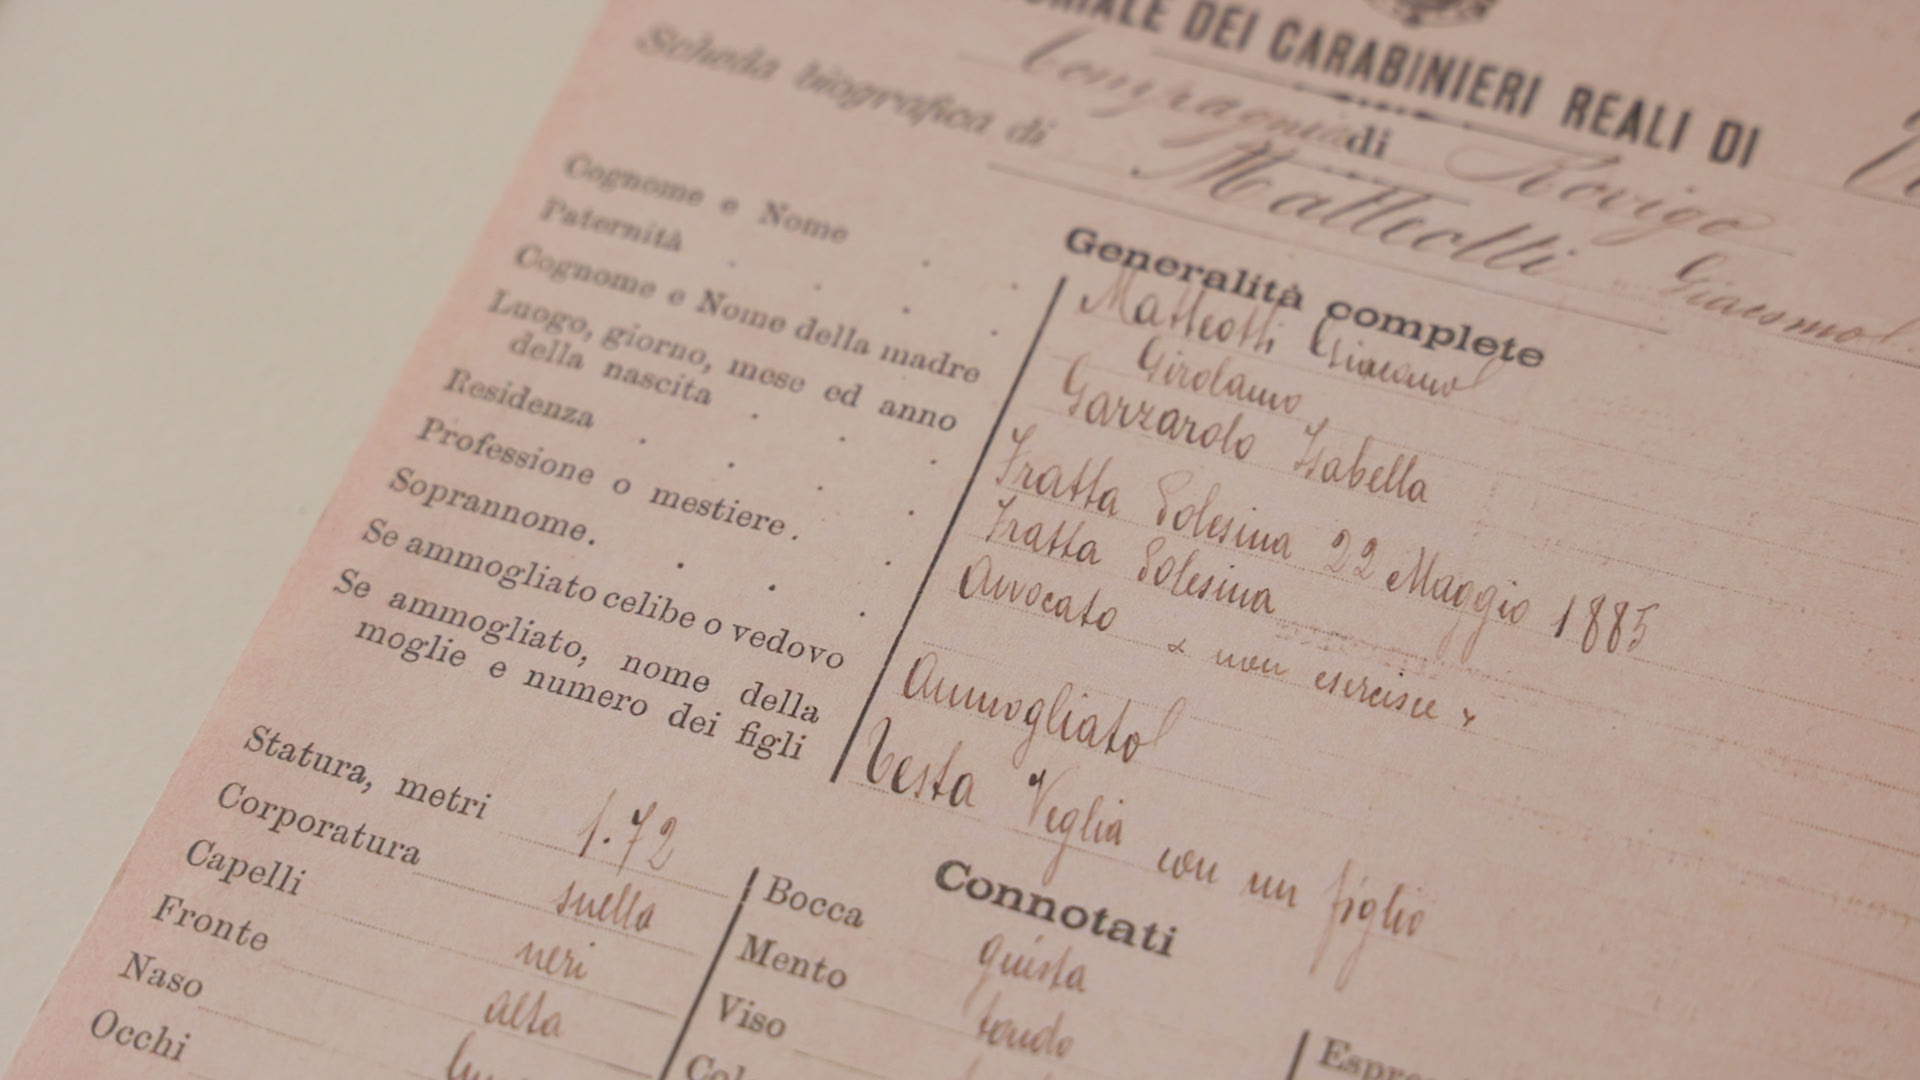 DEI CARABINIERI REALI DI
Compagnia di Rovigo
Scheda biografica di Matteotti Giacomo
Generalità complete
Cognome e Nome Matteotti Giacomo
Paternità Girolamo
Cognome e Nome della madre Garzarolo Isabella
Luogo, giorno, mese ed anno
della nascita Fratta Polesina 22 Maggio 1885
Residenza Fratta Polesina
Professione o mestiere Avvocato x non esercisce x
Soprannome
Se ammogliato celibe o vedovo Ammogliato
Se ammogliato, nome della
moglie e numero dei figli Testa Veglia con un figlio
Connotati
Statura, metri 1.72
Corporatura snella
Capelli neri
Fronte alta
Naso
Occhi
Bocca giusta
Mento tondo
Viso